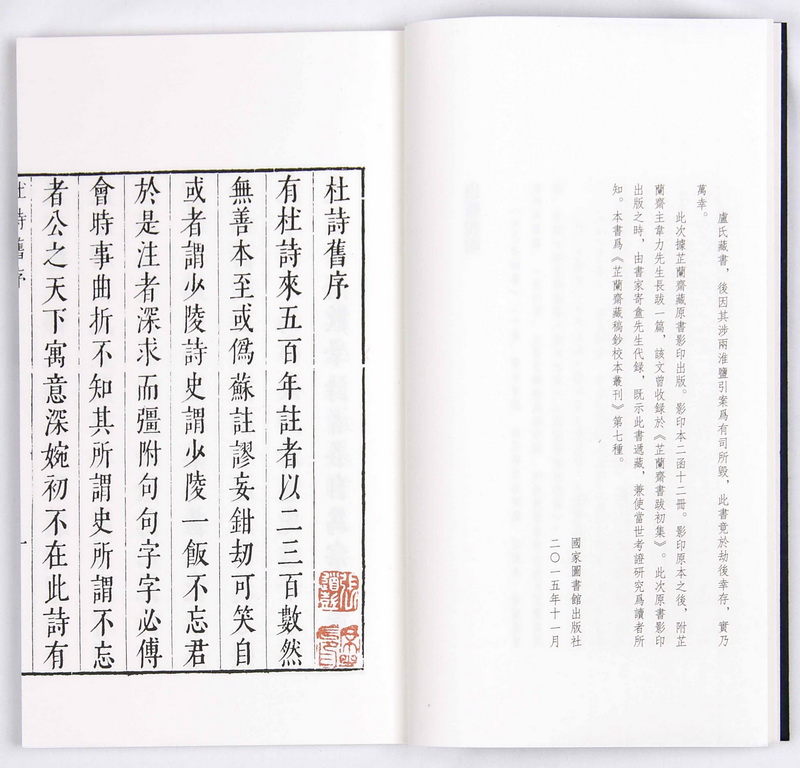 盧氏藏書，後因其涉兩淮鹽引案爲有司所毀，此書竟於劫後幸存，實乃
萬幸。
此次據芷蘭齋藏原書影印出版。影印本二函十二冊。影印原本之後，附芷
蘭齋主韋力先生長跋一篇，該文曾收録於《芷蘭齋書跋初集》。此次原書影印
出版之時，由書家寄盦先生代録，既示此書遞藏，兼使當世考證研究爲讀者所
知。本書爲《芷蘭齋藏稿鈔校本叢刊》第七種。
國家圖書館出版社
二〇一五年十一月
杜詩舊序
有杜詩來五百年註者以二三百數然
無善本至或僞蘇註謬妄鉗劫可笑自
或者謂少陵詩史謂少陵一飯不忘君
於是注者深求而彊附句句字字必傅
會時事曲折不知其所謂史所謂不忘
者公之天下寓意深婉初不在此詩有
杜詩舊序
一